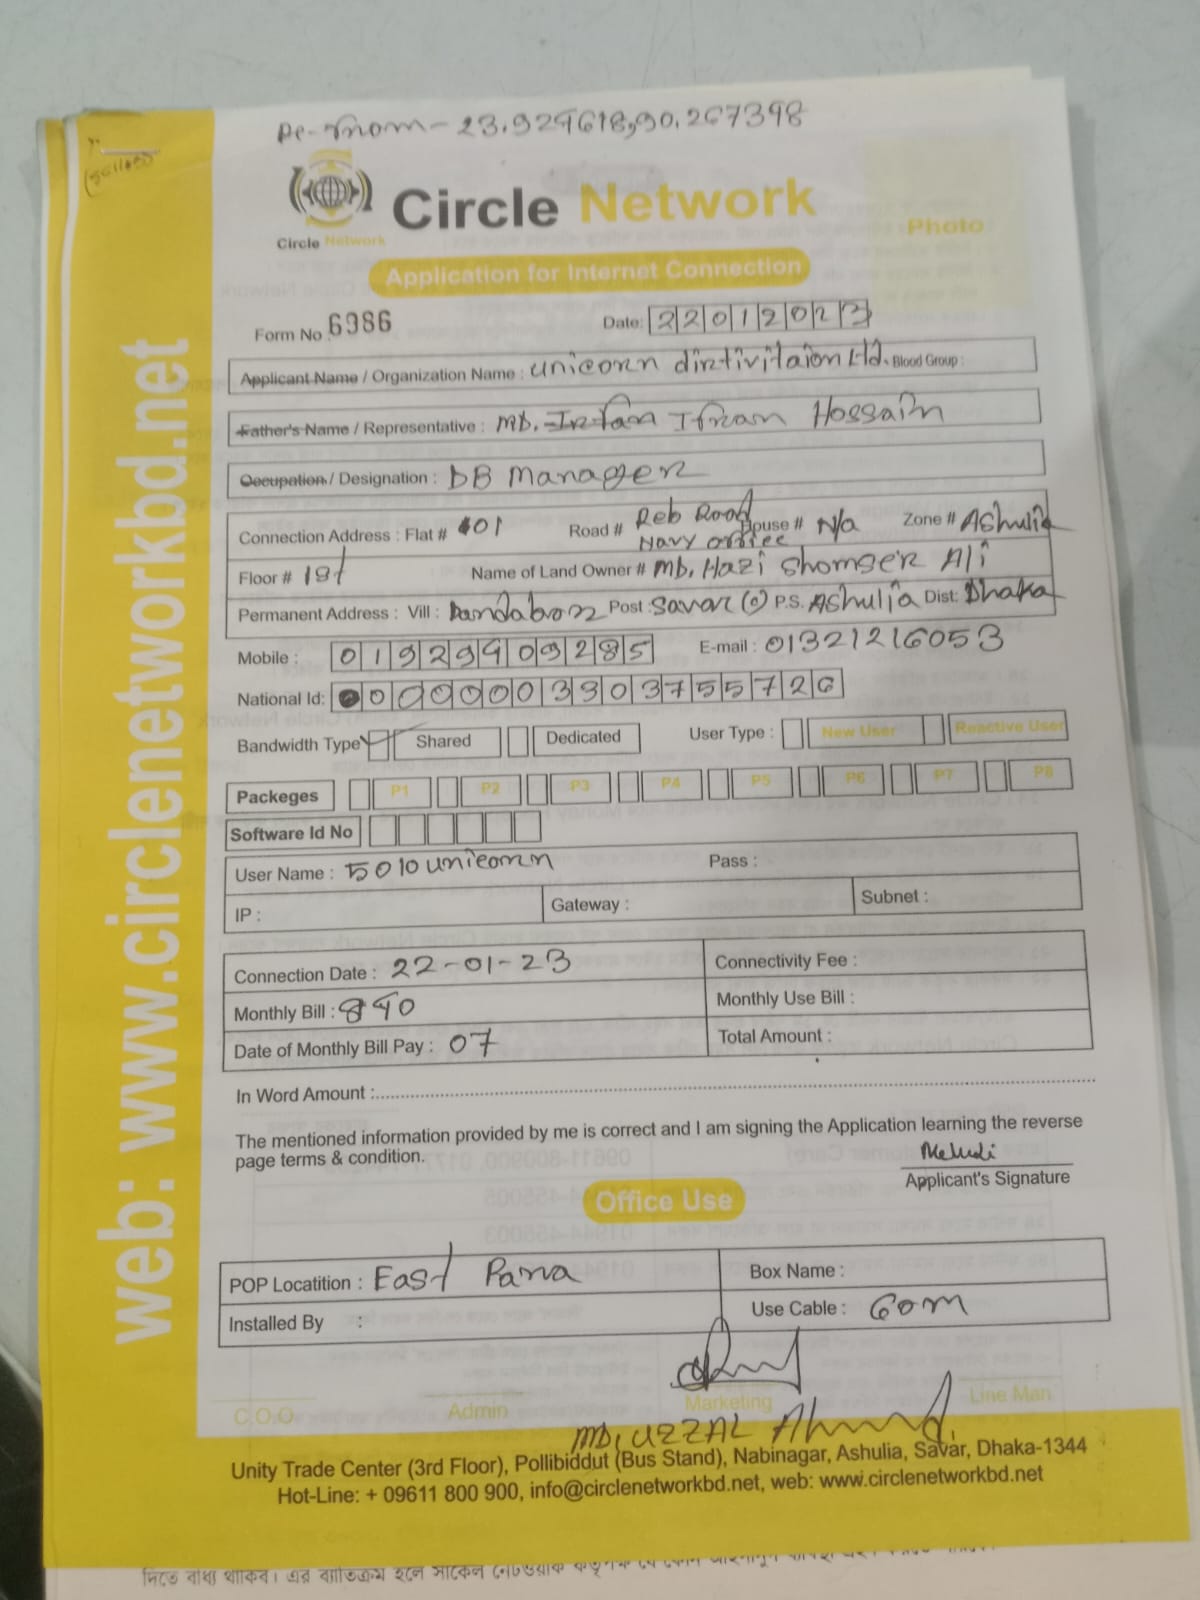 23.929618,90.267398
Circle Network
Circle Network
Photo
Application for Internet Connection
Form No 6986
Date: 22012023
Applicant Name / Organization Name : unicorn dirtivitaion Ltd. Blood Group :
Father's Name / Representative : MD. Irfan Ifran Hossain
Occupation / Designation : DB Manager
Connection Address : Flat # 401 Road # Reb Road Navy office House # N/a Zone # Ashulia
Floor # 1st Name of Land Owner # MD. Hazi Shomser Ali
Permanent Address : Vill : Dandabor Post : Savar (0) P.S. Ashulia Dist: Dhaka
Mobile : 01929909285 E-mail : 01321216053
National Id: 0000003303755726
Bandwidth Type Shared Dedicated User Type : New User Reactive User
Packeges P1 P2 P3 P4 P5 P6 P7 P8
Software Id No
User Name : 5010unicorn Pass :
IP : Gateway : Subnet :
Connection Date : 22-01-23 Connectivity Fee :
Monthly Bill : 840 Monthly Use Bill :
Date of Monthly Bill Pay : 07 Total Amount :
In Word Amount :
The mentioned information provided by me is correct and I am signing the Application learning the reverse
page terms & condition.
Mehedi
Applicant's Signature
Office Use
POP Locatition : East Para Box Name :
Installed By : Use Cable : 60m
C.O.O Admin Marketing Line Man
MD. UZZAL Ahmed
Unity Trade Center (3rd Floor), Pollibiddut (Bus Stand), Nabinagar, Ashulia, Savar, Dhaka-1344
Hot-Line: + 09611 800 900, info@circlenetworkbd.net, web: www.circlenetworkbd.net
web: www.circlenetworkbd.net
দিতে বাধ্য থাকিব। এর ব্যতিক্রম হলে সার্কেল নেটওয়ার্ক কর্তৃপক্ষ যে কোন